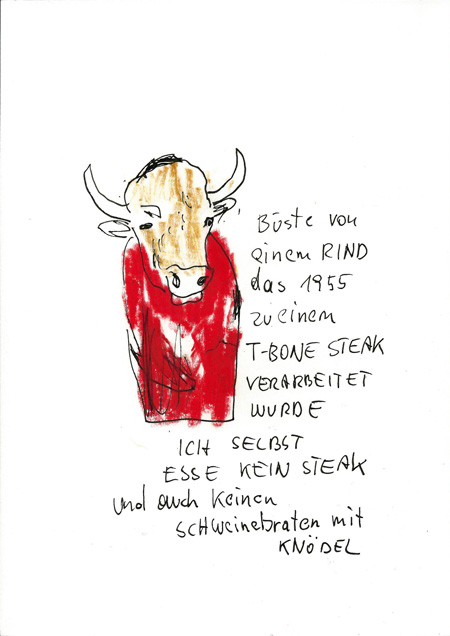 Büste von
einem RIND
das 1955
zu einem
T-BONE STEAK
VERARBEITET
WURDE
ICH SELBST
ESSE KEIN STEAK
und auch keinen
SCHWeinebraten mit
KNÖDEL